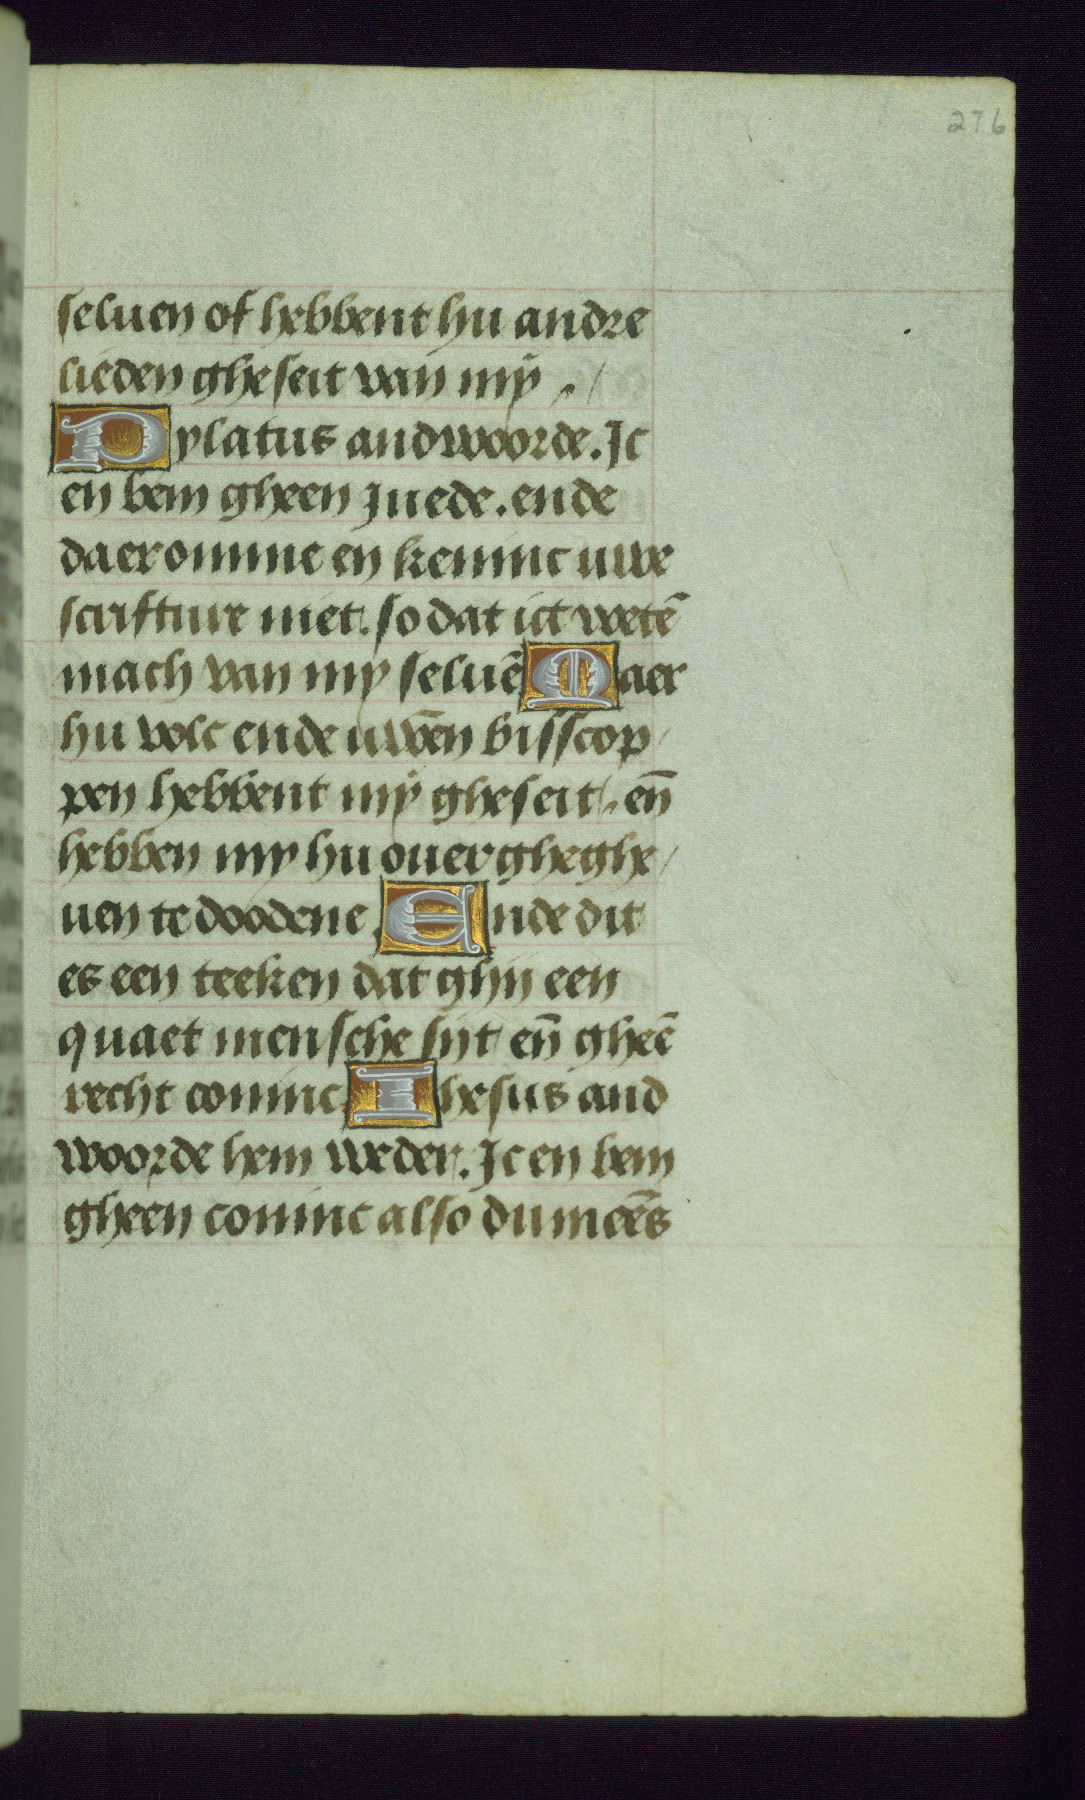 276
seluen of hebbent hu andre
lieden gheseit van mÿ ./
Pylatus andwoorde. Ic
en bem gheen Juede. ende
daeromme en kennic uwe
scrifture niet. so dat ict wetē
mach van my seluē Maer
hu volc ende uwen bisscop/
pen hebbent mÿ gheseit/. en̄
hebben my hu ouergheghe/
uen te doodene. Ende dit
es een teeken dat ghij een
quaet mensche sijt/ en̄ gheē
recht coninc. Ihesus and
woorde hem weder. Ic en bem
gheen coninc also du meēs